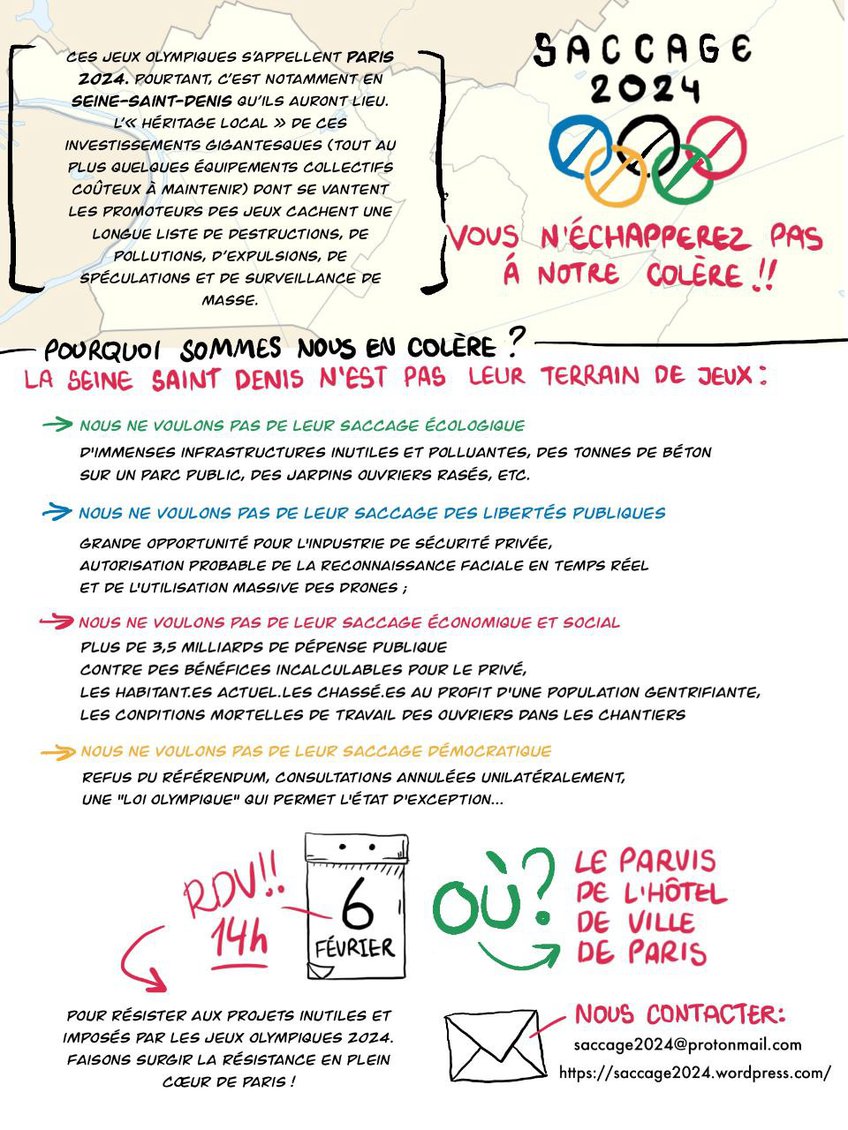 CES JEUX OLYMPIQUES S'APPELLENT PARIS
2024. POURTANT, C'EST NOTAMMENT EN
SEINE-SAINT-DENIS QU'ILS AURONT LIEU.
L'« HÉRITAGE LOCAL » DE CES
INVESTISSEMENTS GIGANTESQUES (TOUT AU
PLUS QUELQUES ÉQUIPEMENTS COLLECTIFS
COÛTEUX À MAINTENIR) DONT SE VANTENT
LES PROMOTEURS DES JEUX CACHENT UNE
LONGUE LISTE DE DESTRUCTIONS, DE
POLLUTIONS, D'EXPULSIONS, DE
SPÉCULATIONS ET DE SURVEILLANCE DE
MASSE.
SACCAGE
2024
VOUS N'ÉCHAPPEREZ PAS
Á NOTRE COLÈRE !!
POURQUOI SOMMES NOUS EN COLÈRE ?
LA SEINE SAINT DENIS N'EST PAS LEUR TERRAIN DE JEUX :
NOUS NE VOULONS PAS DE LEUR SACCAGE ÉCOLOGIQUE
D'IMMENSES INFRASTRUCTURES INUTILES ET POLLUANTES, DES TONNES DE BÉTON
SUR UN PARC PUBLIC, DES JARDINS OUVRIERS RASÉS, ETC.
NOUS NE VOULONS PAS DE LEUR SACCAGE DES LIBERTÉS PUBLIQUES
GRANDE OPPORTUNITÉ POUR L'INDUSTRIE DE SÉCURITÉ PRIVÉE,
AUTORISATION PROBABLE DE LA RECONNAISSANCE FACIALE EN TEMPS RÉEL
ET DE L'UTILISATION MASSIVE DES DRONES ;
NOUS NE VOULONS PAS DE LEUR SACCAGE ÉCONOMIQUE ET SOCIAL
PLUS DE 3,5 MILLIARDS DE DÉPENSE PUBLIQUE
CONTRE DES BÉNÉFICES INCALCULABLES POUR LE PRIVÉ,
LES HABITANT.ES ACTUEL.LES CHASSÉ.ES AU PROFIT D'UNE POPULATION GENTRIFIANTE,
LES CONDITIONS MORTELLES DE TRAVAIL DES OUVRIERS DANS LES CHANTIERS
NOUS NE VOULONS PAS DE LEUR SACCAGE DÉMOCRATIQUE
REFUS DU RÉFÉRENDUM, CONSULTATIONS ANNULÉES UNILATÉRALEMENT,
UNE "LOI OLYMPIQUE" QUI PERMET L'ÉTAT D'EXCEPTION...
RDV!!
14h
6
FÉVRIER
OÙ?
LE PARVIS
DE L'HÔTEL
DE VILLE
DE PARIS
POUR RÉSISTER AUX PROJETS INUTILES ET
IMPOSÉS PAR LES JEUX OLYMPIQUES 2024.
FAISONS SURGIR LA RÉSISTANCE EN PLEIN
CŒUR DE PARIS !
NOUS CONTACTER:
saccage2024@protonmail.com
https://saccage2024.wordpress.com/